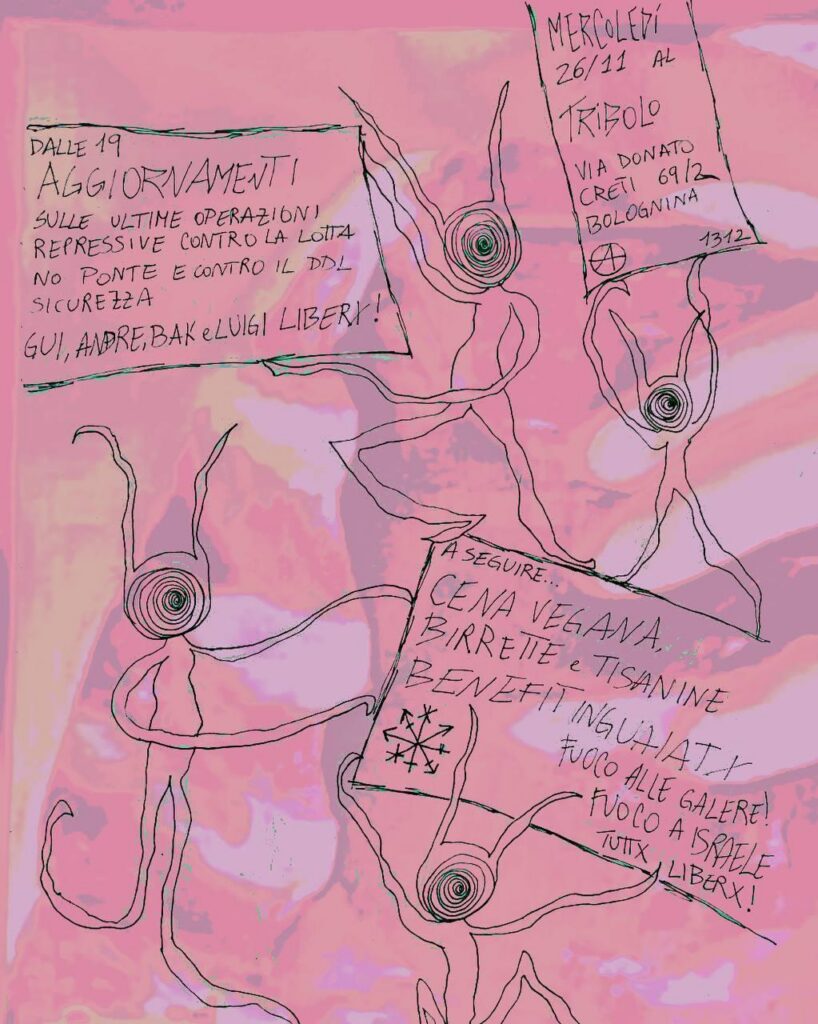 MERCOLEDÍ
26/11 AL
TRIBOLO
VIA DONATO
CRETI 69/2
BOLOGNINA
1312
DALLE 19
AGGIORNAMENTI
SULLE ULTIME OPERAZIONI
REPRESSIVE CONTRO LA LOTTA
NO PONTE E CONTRO IL DDL
SICUREZZA
GUI, ANDRE, BAK e LUIGI LIBERX!
A SEGUIRE...
CENA VEGANA
BIRRETTE e TISANINE
BENEFIT INGUAIATX
FUOCO ALLE GALERE!
FUOCO A ISRAELE
TUTTX LIBERX!